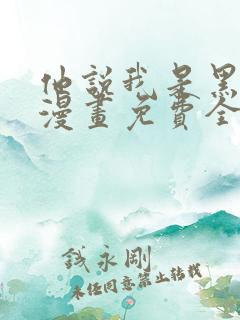 他說我是黑
漫畫免費全
錢永剛
未經同意禁止轉載